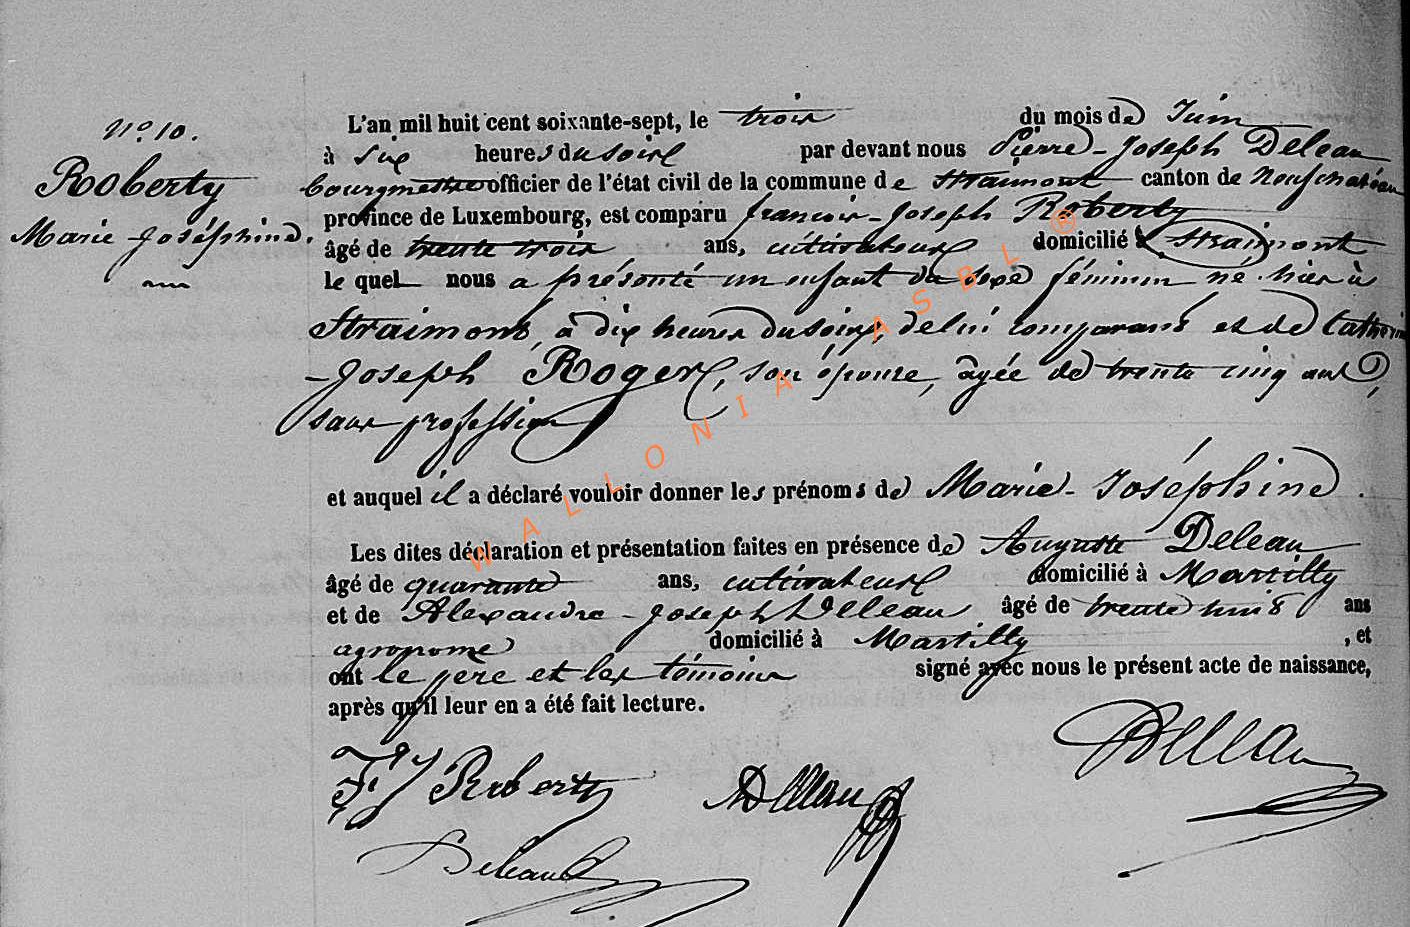 N.° 10.
Roberty
Marie-Joséphine.
L'an mil huit cent soixante-sept, le trois du mois de Juin
à six heures du soir par devant nous Pierre-Joseph Deleau
bourgmestre officier de l'état civil de la commune de Straimont canton de Neufchateau
province de Luxembourg, est comparu françois-Joseph Roberty
âgé de trente trois ans, cultivateur domicilié à Straimont
le quel nous a présenté un enfant du sexe féminin né hier à
Straimont, à dix heures du soir, de lui comparant et de Catherine
-Joseph Roger, son épouse, âgée de trente cinq ans,
sans profession
et auquel il a déclaré vouloir donner les prénoms de Marie-Joséphine.
Les dites déclaration et présentation faites en présence de Auguste Deleau
âgé de quarante ans, cultivateur domicilié à Martilly
et de Alexandre-Joseph Deleau âgé de trente huit ans
agronome domicilié à Martilly, et
ont le père et les témoins signé avec nous le présent acte de naissance,
après qu'il leur en a été fait lecture.
F J Roberty ADeleau Deleau
Deleau
WALLONIA ASBL ®